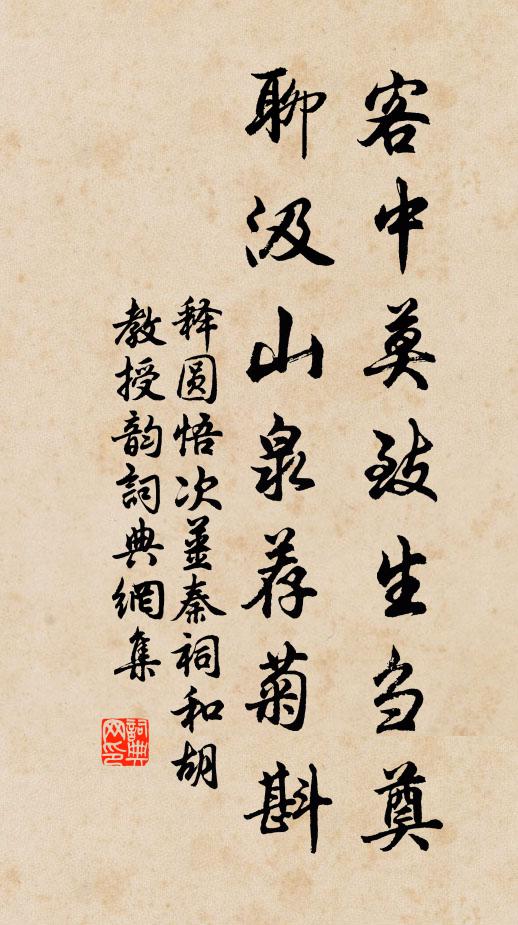 客中莫致生刍奠
聊汲山泉荐菊斟
释圆悟次姜秦祠和胡
教授韵詞典網集
詞典网印